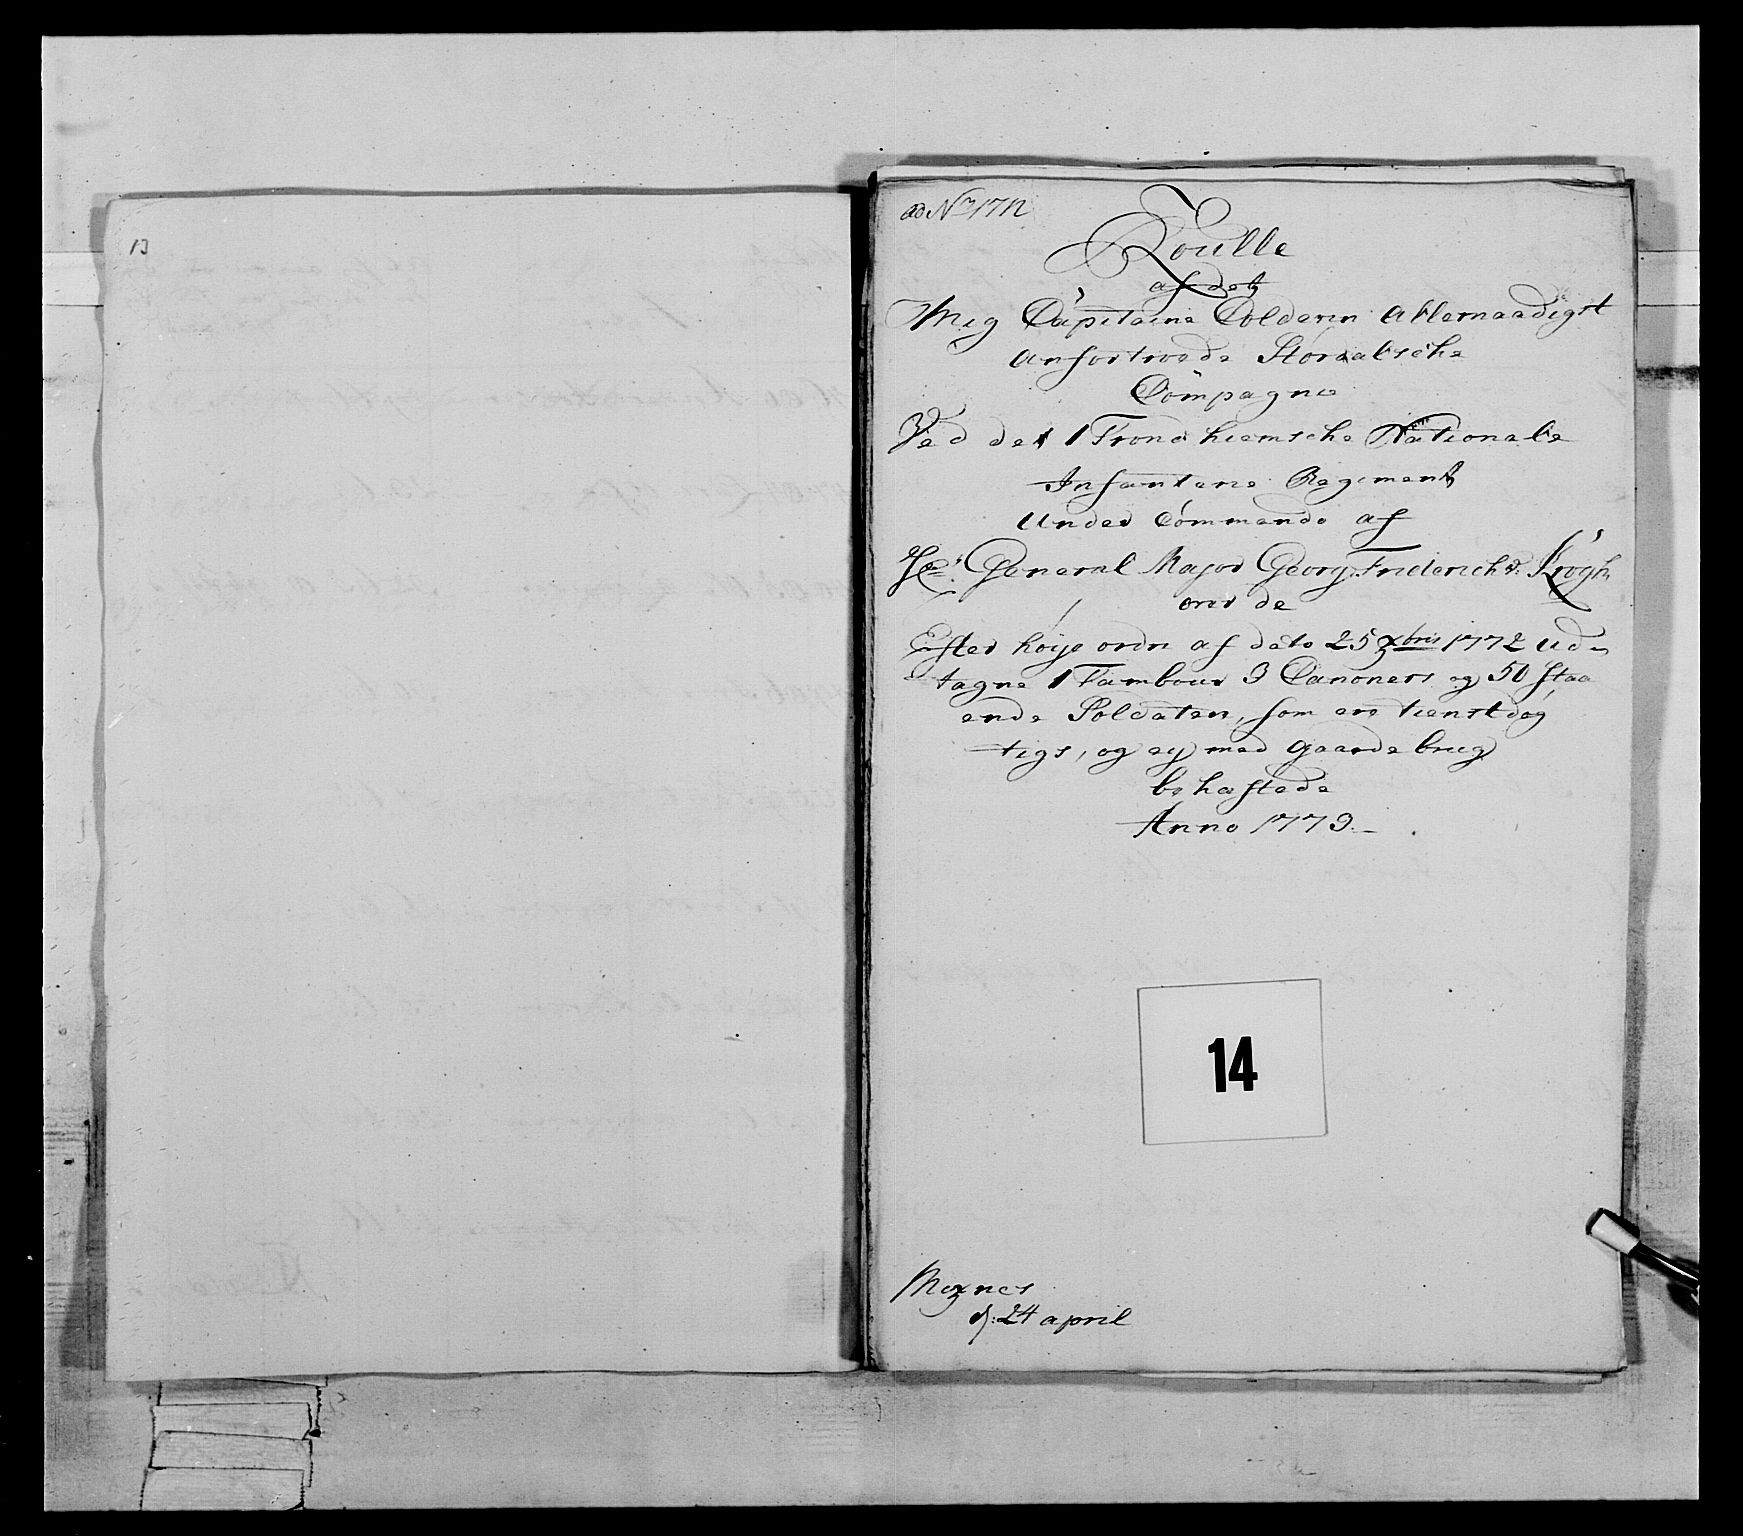 13
ad No 1712
Roulle
af det
Mig Capitaine Coldevin Allernaadigst
anfortroede Störaalsche
Compagnie
Ved det 1 Trondhiemsche Nationale
Infanterie Regiment
under Commando af
Hr: General Major Georg Friderich v: Krogh
over de
Efter höye ordre af dato 25 xbris 1772 ud-
tagne 1 Tambour 3 Canoners og 50 staa
ende Soldater, som ere tienstdög
tige, og ey med gaardebrug
behæftede
Anno 1773.
14
Moxnes
d: 24 april